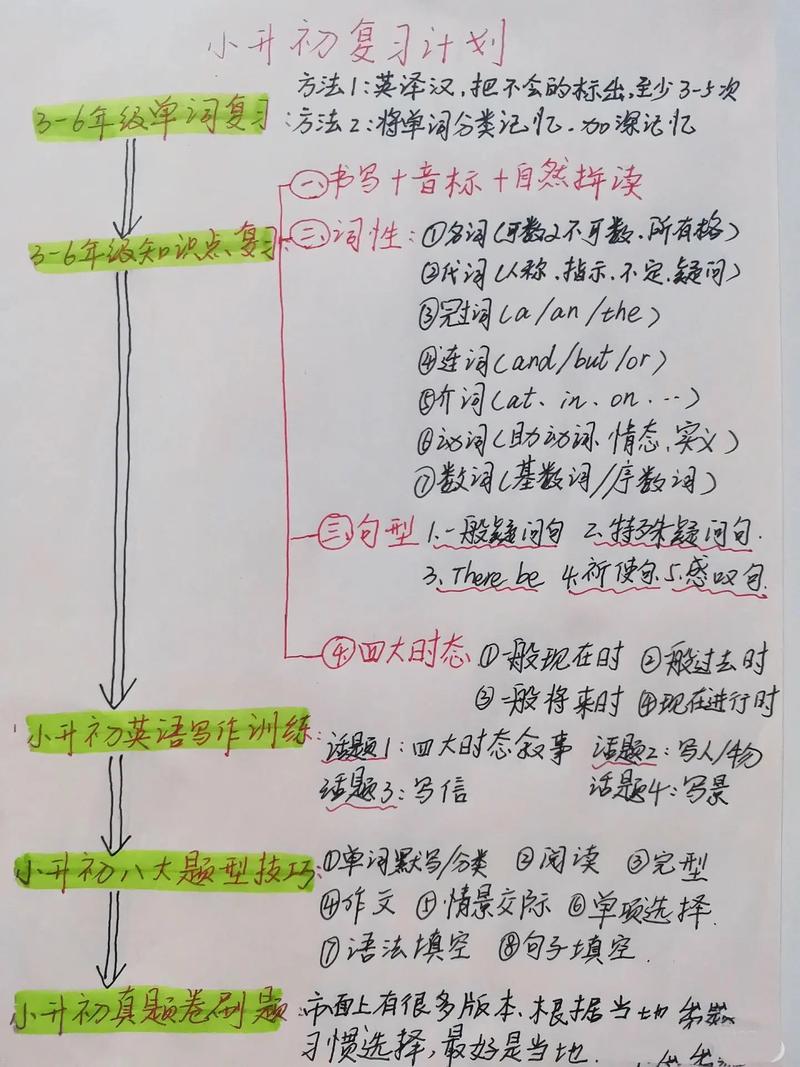 小升初复习计划
方法1:英译汉,把不会的标出,至少3-5次
3-6年级单词复习:方法2:将单词分类记忆.加深记忆
㊀书写+音标+自然拼读
3-6年级知识点复习
㊁词性:①名词(可数从不可数、所有格)
②代词(人称、指示、不定、疑问)
③冠词(a/an/the)
④连词(and/but/or)
⑤介词(at、in、on、…)
⑥动词(助动词、情态、实义)
⑦数词(基数词/序数词)
㊂句型 1.一般疑问句 2.特殊疑问句.
3.There be 4.祈使句.5.感叹句.
④四大时态 ①一般现在时 ②一般过去时
③一般将来时 ④现在进行时
小升初英语写作训练:话题1:四大时态叙事 话题2:写人/物
话题3:写信 话题4:写景
小升初八大题型技巧:①单词默写/分类 ②阅读 ③完型
④作文 ⑤情景交际 ⑥单项选择
⑦语法填空 ⑧句子填空.
小升初真题卷刷题:市面上有很多版本、根据当地
习惯选择,最好是当地.